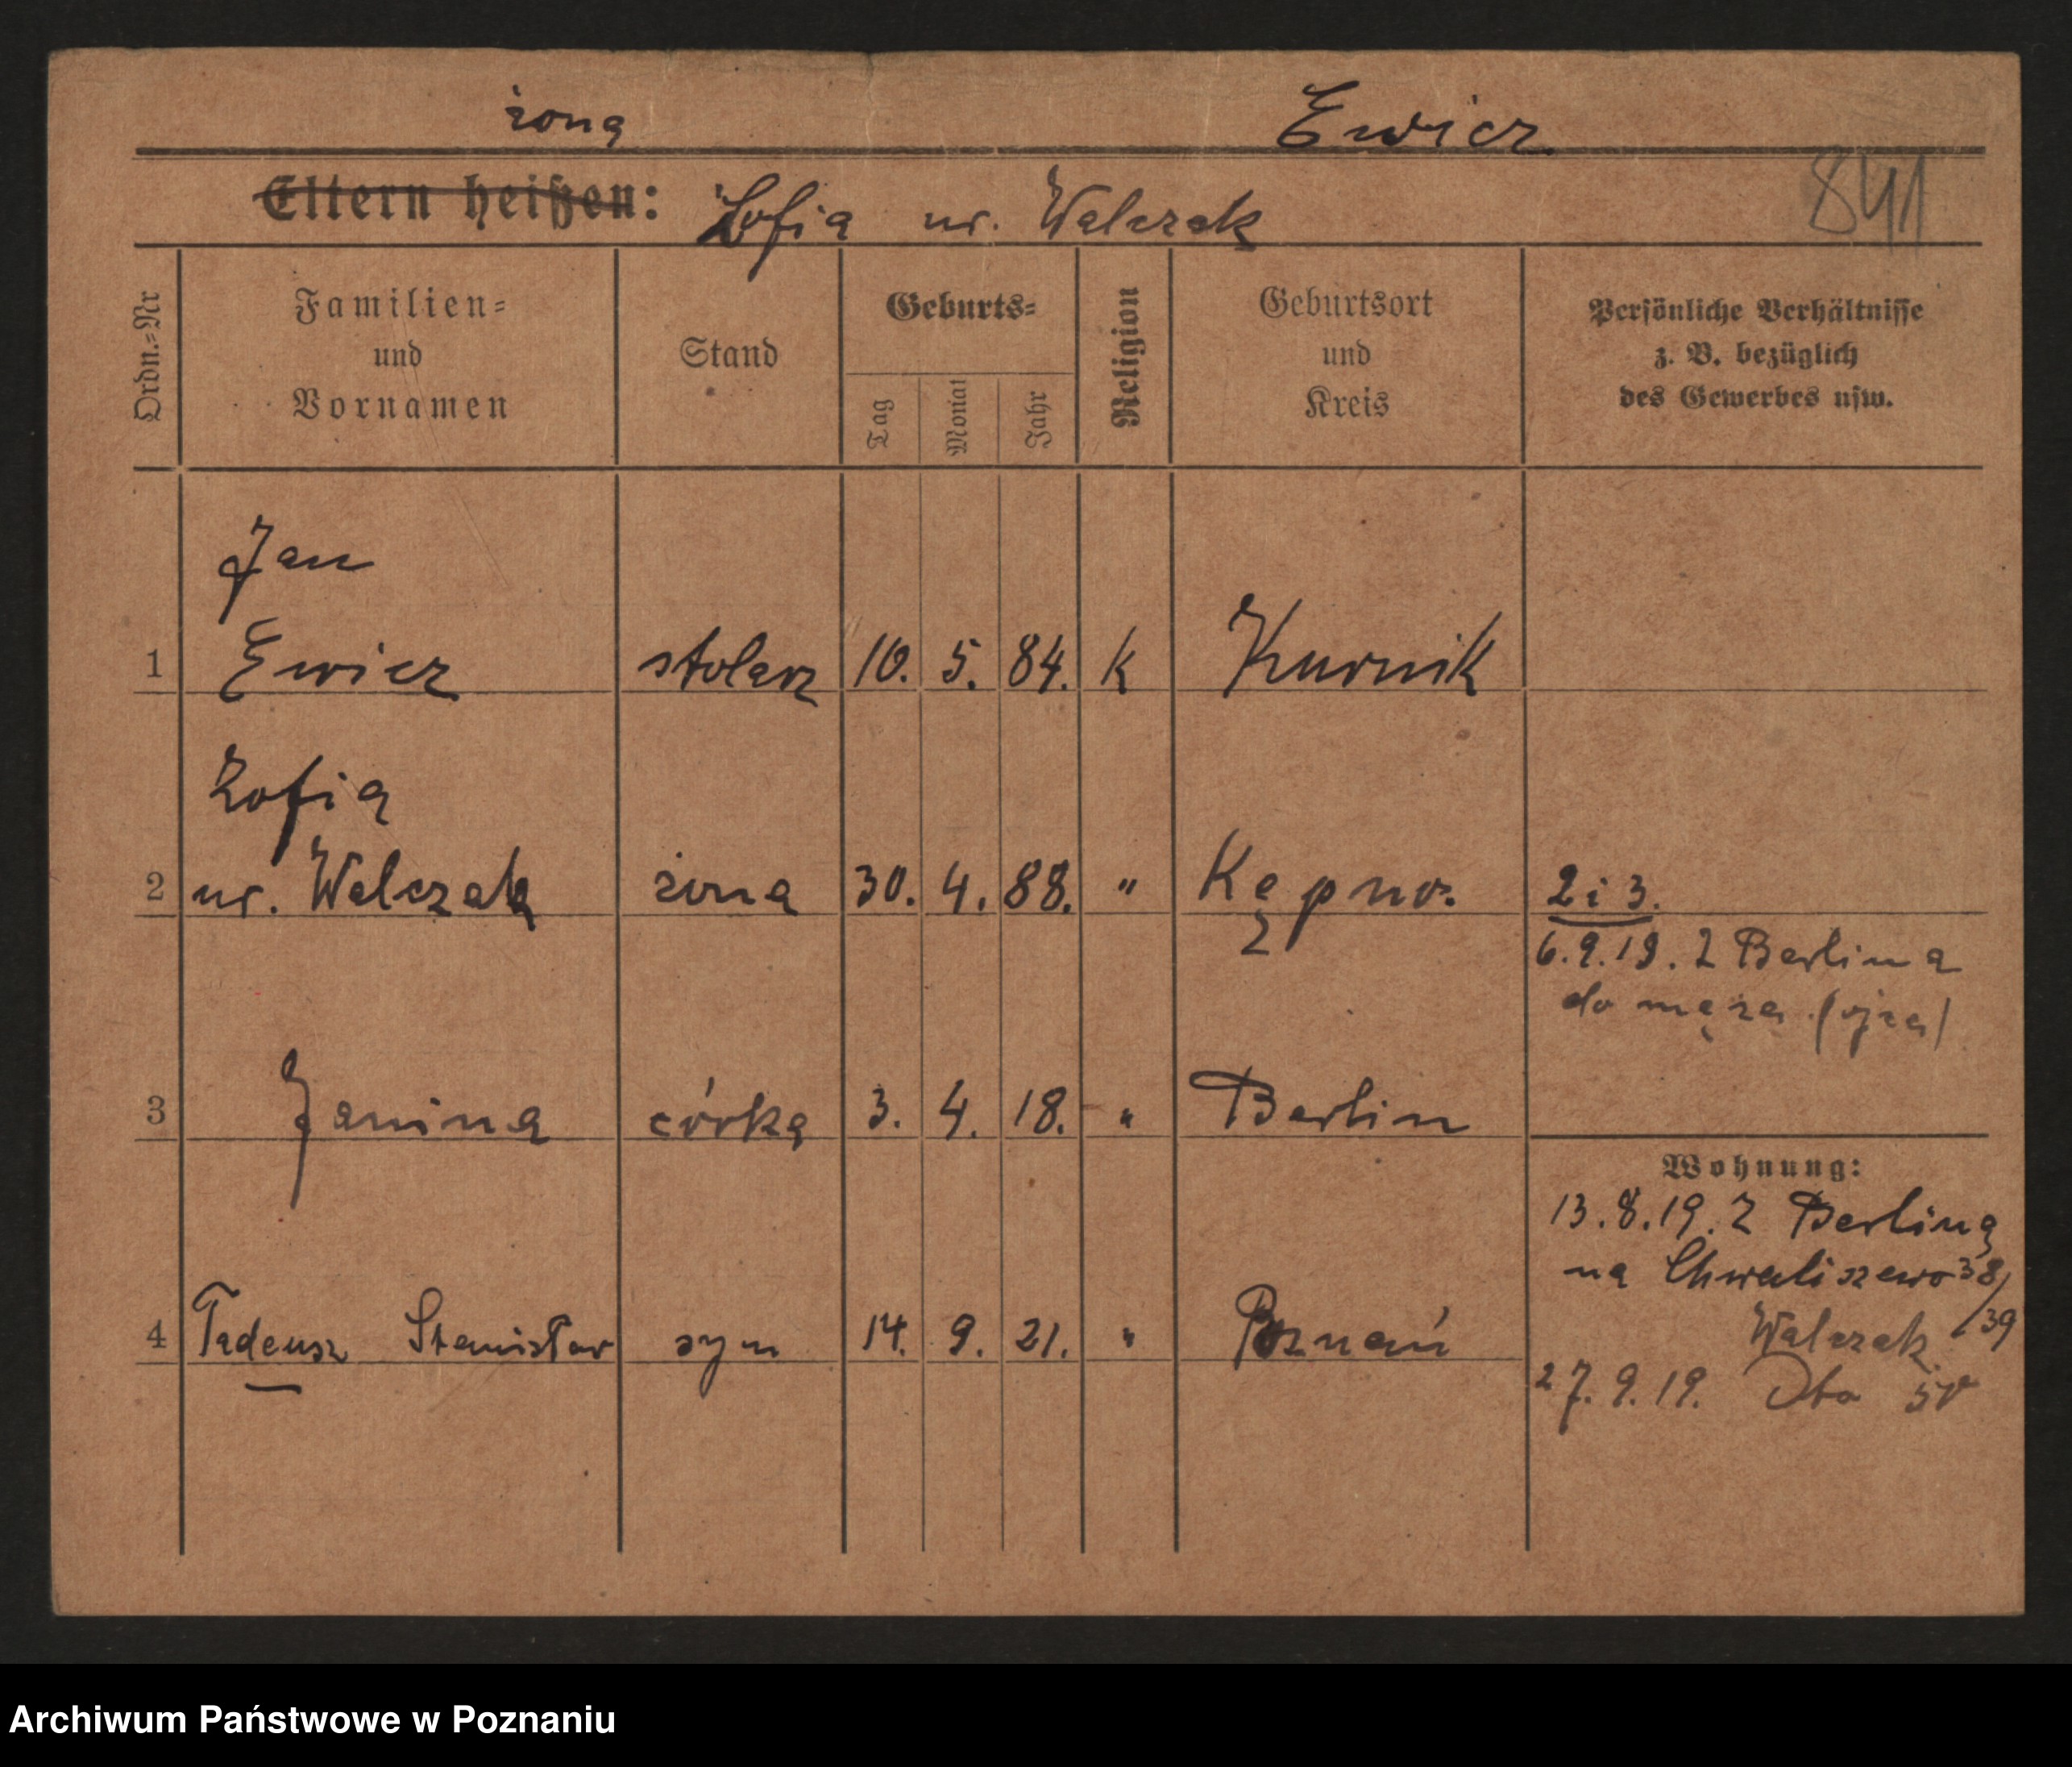 żona Ewicz
Eltern heißen: Zofia ur. Walczak 841
Ordn.-Nr
Familien-
und
Vornamen
Stand
Geburts-
Tag Monat Jahr
Religion
Geburtsort
und
Kreis
Persönliche Verhältnisse
z. B. bezüglich
des Gewerbes usw.
Jan
1 Ewicz stolarz 10. 5. 84. k Kurnik
Zofia
2 ur. Walczak żona 30. 4. 88. " Kępno. 2 i 3.
6.9.19. Z Berlina
do męża (ojca)
3 Janina córka 3. 4. 18. " Berlin
Wohnung:
13.8.19. Z Berlina
na Chwaliszewo 38/39
Walczak
4 Tadeusz Stanisław syn 14. 9. 21. " Poznań
27.9.19.
Archiwum Państwowe w Poznaniu